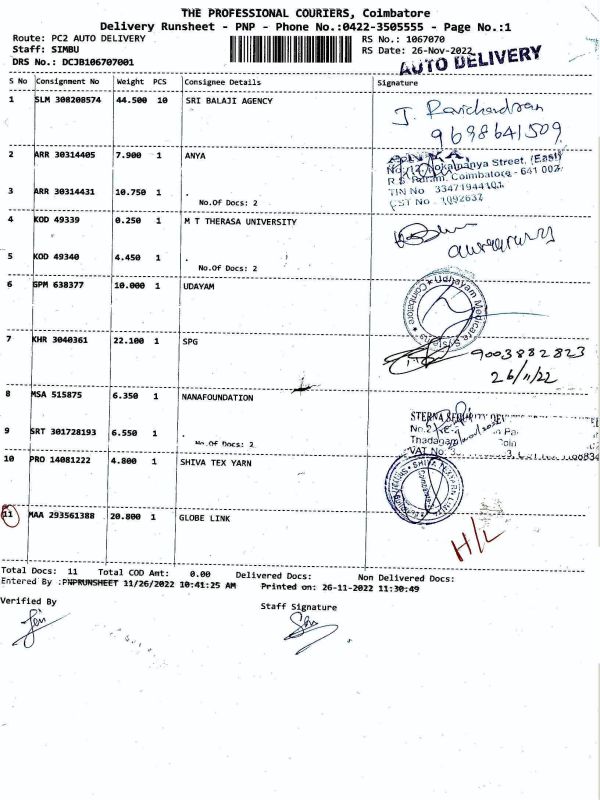 THE PROFESSIONAL COURIERS, Coimbatore
Delivery Runsheet - PNP - Phone No.:0422-3505555 - Page No.:1
Route: PC2 AUTO DELIVERY RS No.: 1067070
Staff: SIMBU RS Date: 26-Nov-2022
DRS No.: DCJB106707001 AUTO DELIVERY
S No Consignment No Weight PCS Consignee Details Signature
1 SLM 308208574 44.500 10 SRI BALAJI AGENCY J. Ravichandran
9698641509
2 ARR 30314405 7.900 1 ANYA
Street, (East)
R S Puram, Coimbatore - 641 002
TIN No 33471944101
3 ARR 30314431 10.750 1 .
CST No . 1092637
No.Of Docs: 2
4 KOD 49339 0.250 1 M T THERASA UNIVERSITY
5 KOD 49340 4.450 1 .
No.Of Docs: 2
6 GPM 638377 10.000 1 UDAYAM
Udhayam Medicare Systems Coimbatore
7 KHR 3040361 22.100 1 SPG
9003882823
26/11/22
8 MSA 515875 6.350 1 NANAFOUNDATION
STERNA
9 SRT 301728193 6.550 1 .
Thadagam
No.Of Docs: 2
VAT No.
10 PRO 14081222 4.800 1 SHIVA TEX YARN
SHIVA TEXYARN
11 MAA 293561388 20.800 1 GLOBE LINK
H/L
Total Docs: 11 Total COD Amt: 0.00 Delivered Docs: Non Delivered Docs:
Entered By :PNPRUNSHEET 11/26/2022 10:41:25 AM Printed on: 26-11-2022 11:30:49
Verified By Staff Signature